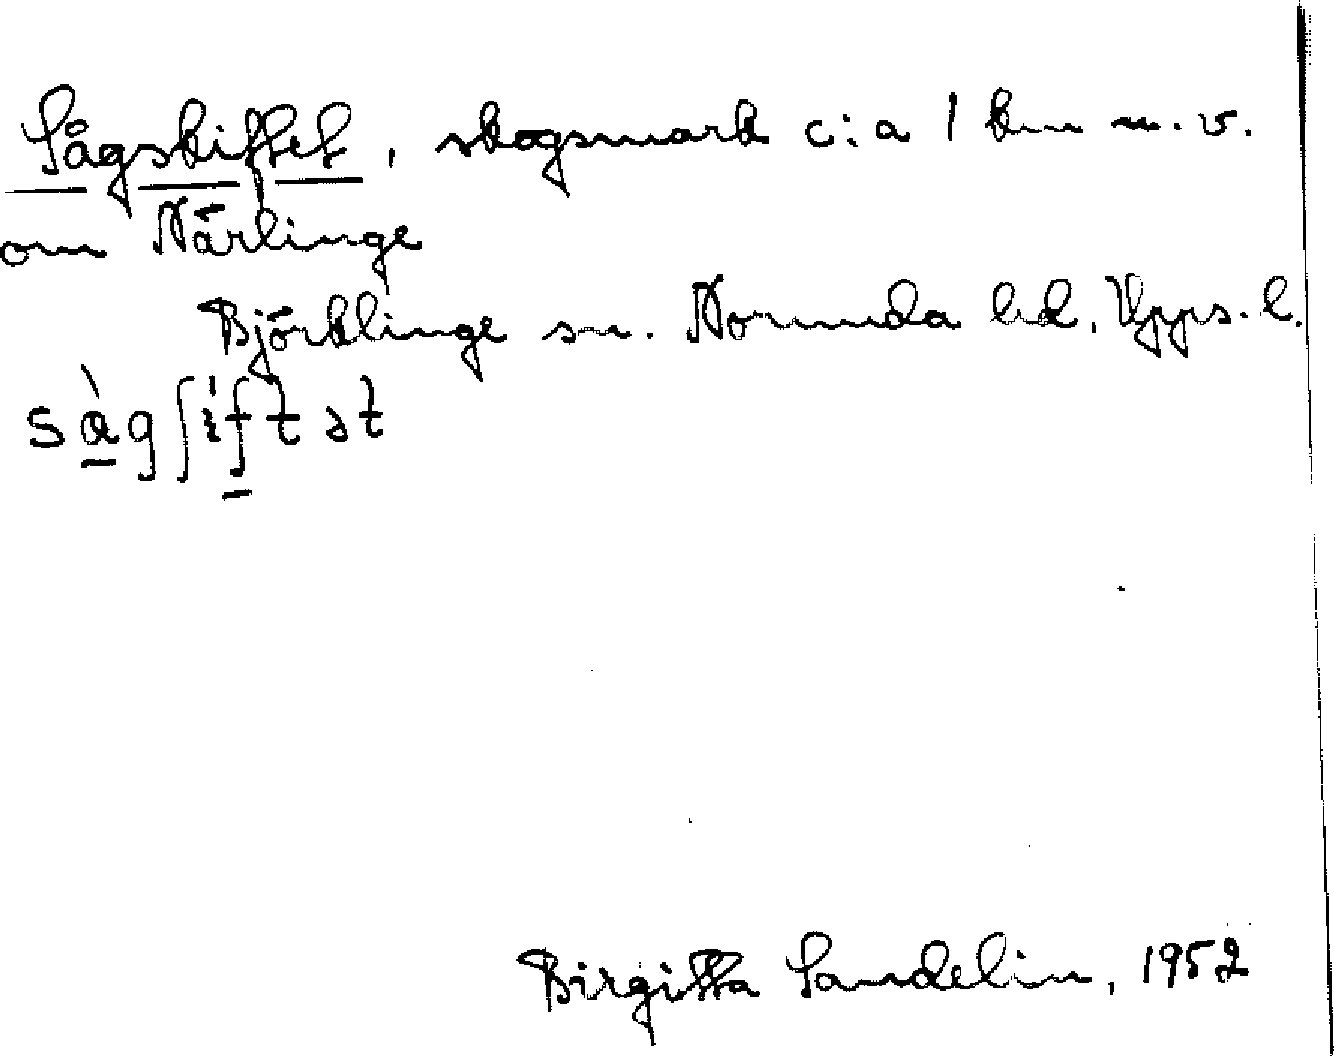 Sågskiftet, skogsmark c:a 1 km n.v.
om Närlinge
Björklinge sn. Norunda hd. Upps. l.
sàgʃiftət
Birgitta Sandelin, 1952